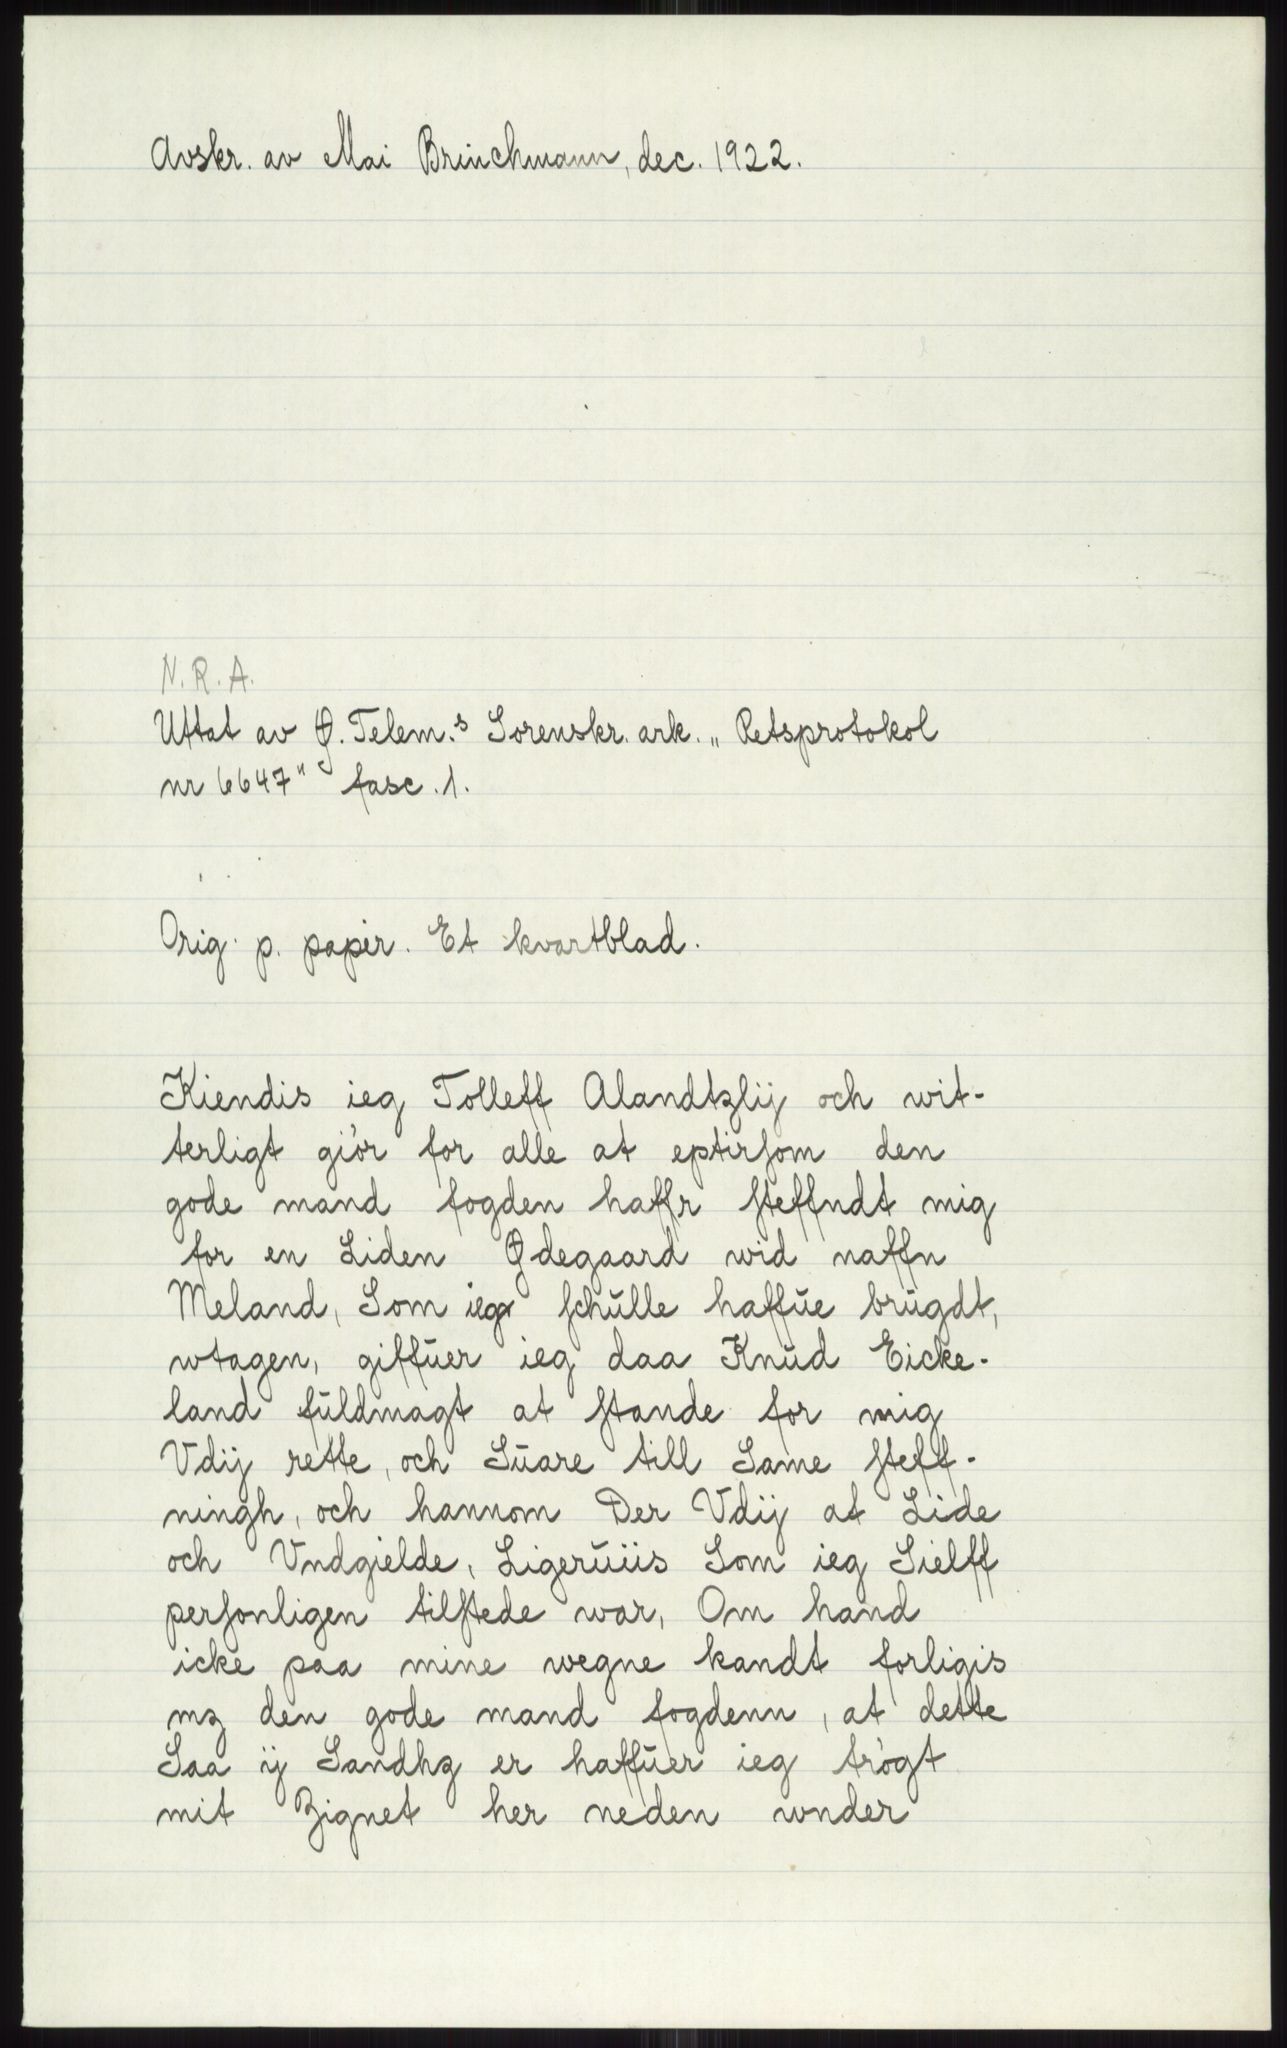 Avskr. av Mai Brinchmann, dec. 1922.
N.R.A.
Uttat av Ø. Telem.s Sorenskr. ark. „ Retsprotokol
nr 6647" fasc. 1.
Orig. p. papir. Et kvartblad.
Kiendis ieg Tolleff Alandtzlij och wit-
terligt giör for alle at eptirsom den
gode mand fogden haffr steffndt mig
for en Liden Ødegaard wid naffn
Meland, Som ieg schulle haffue brugdt,
wtagen, giffuer ieg daa Knud Eicke-
land fuldmagt at stande for mig
Vdij rette, och Suare till Same steff-
ningh, och hannom Der Vdij at Lide
och Vndgielde, Ligeruiis Som ieg Sielff
personligen tilstede war, Om hand
icke paa mine wegne kandt forligis
mz den gode mand fogdenn, at dette
Saa ij Sandhz er haffuer ieg trögt
mit Zignet her neden wnder